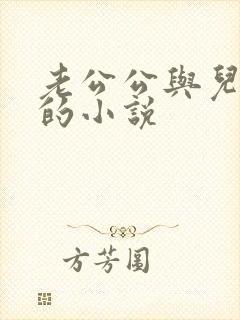 老公公與兒
的小說
方芳圓